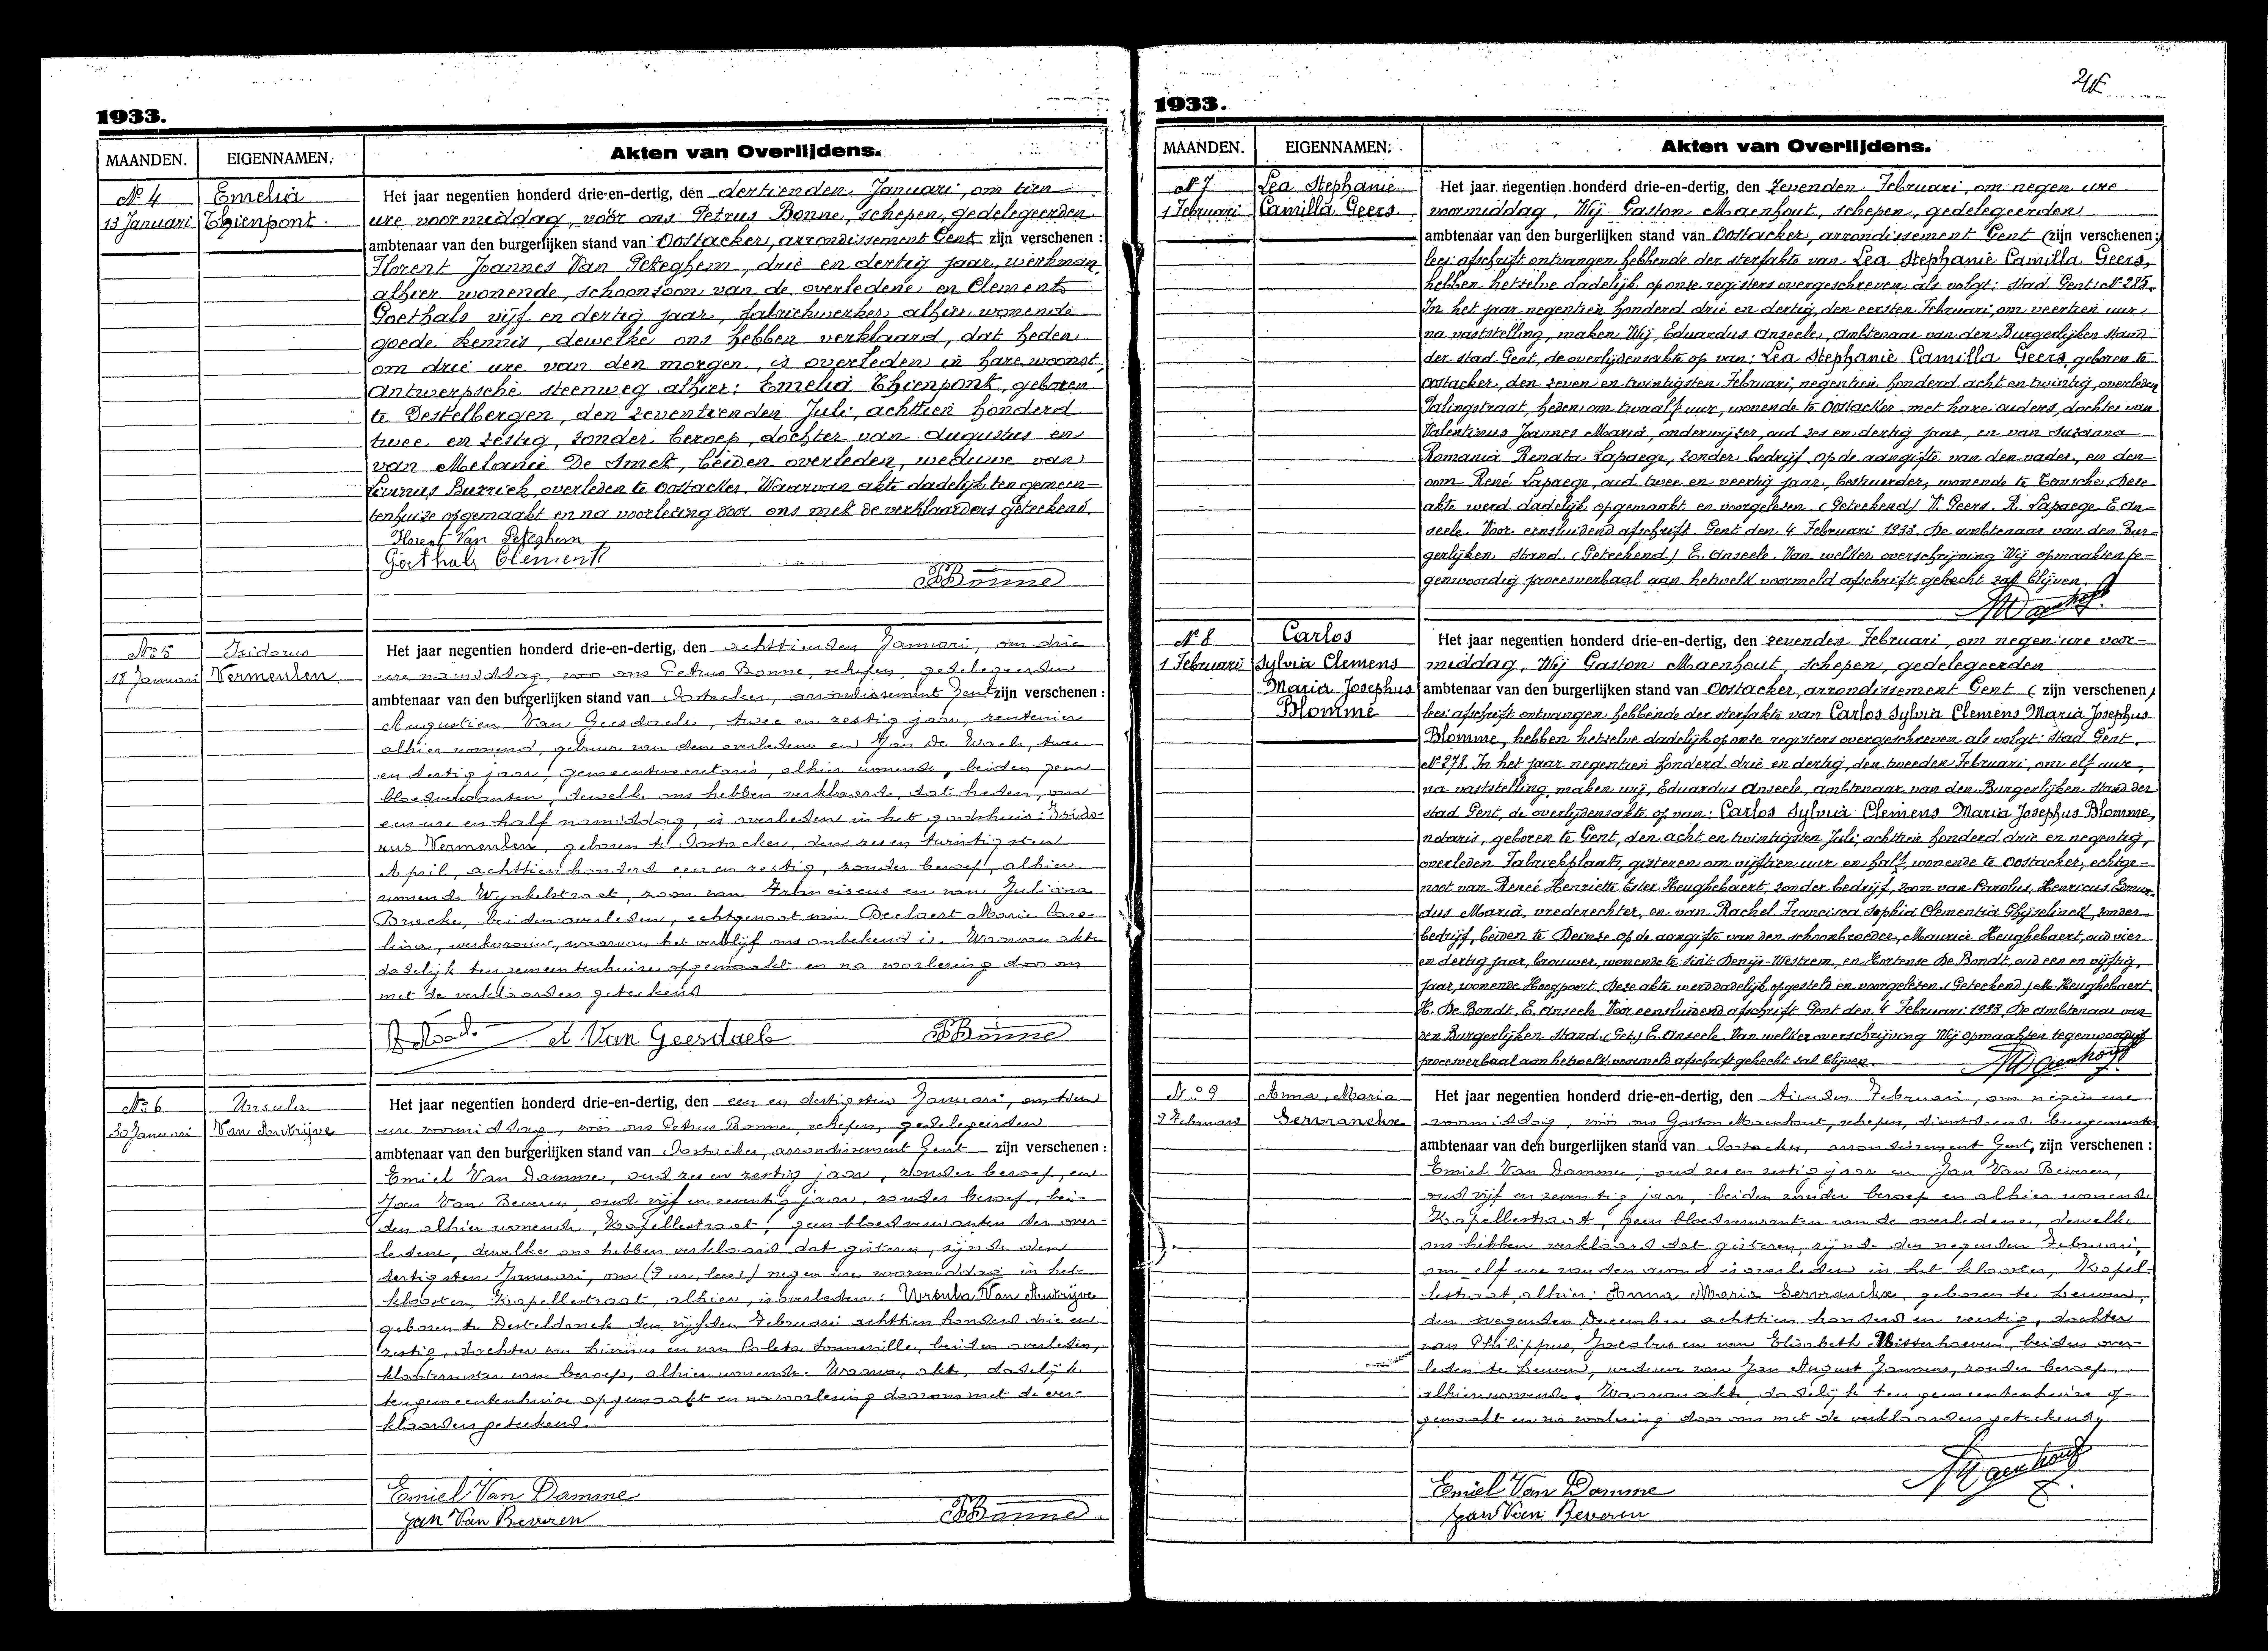 1933.
MAANDEN. EIGENNAMEN. Akten van Overlijdens.
Nº 4 Emelia
13 Januari Thienpont.
Het jaar negentien honderd drie-en-dertig, den dertienden Januari, om tien
ure voormiddag, vóór ons Petrus Bonne, schepen, gedelegeerden
ambtenaar van den burgerlijken stand van Oostacker, arrondissement Gent zijn verschenen:
Florent Joannes Van Peteghem, drie en dertig jaar, werkman,
alhier wonende, schoonzoon van de overledene en Clement
Goethals vijf en dertig jaar, fabriekwerker, alhier wonende
goede kennis, dewelke ons hebben verklaard, dat heden
om drie ure van den morgen, is overleden in hare woonst,
Antwerpsche steenweg alhier: Emelia Thienpont, geboren
te Destelbergen, den zeventienden Juli, achttien honderd
twee en zestig, zonder beroep, dochter van Augustus en
van Melanie De Smet, beiden overleden, weduwe van
Livinus Burrick, overleden te Oostacker. Waarvan akte dadelijk ten gemeen-
tenhuize opgemaakt en na voorlezing door ons met de verklaarders geteekend.
Florent Van Peteghem
Goethals Clement
PBonne
Nº 5 Isidorus
18 Januari Vermeulen
Het jaar negentien honderd drie-en-dertig, den achttienden Januari, om drie
ure namiddag, voor ons Petrus Bonne, schepen, gedelegeerden
ambtenaar van den burgerlijken stand van Oostacker, arrondissement Gent zijn verschenen:
Augustien Van Geesdaele, twee en zestig jaar, rentenier
alhier wonend, gebuur van den overledene en Jan De Waele, twee
en dertig jaar, gemeentesecretaris, alhier wonende, beiden geen
bloedverwanten, dewelke ons hebben verklaard, dat heden, om
een ure en half namiddag, is overleden in het godshuis: Isido-
rus Vermeulen, geboren te Oostacker, den zeven en twintigsten
April, achttien honderd een en zestig, zonder beroep, alhier
wonende Wynkelstraat, zoon van Franciscus en van Juliana
Briecke, beiden overleden, echtgenoot van Beelaert Marie Caro-
lina, werkvrouw, waarvan het verblijf ons onbekend is. Waarvan akte
dadelijk ten gemeentenhuize opgemaakt en na voorlezing door ons
met de verklaarders geteekend.
A Van Geesdaele
PBonne
Nº 6 Ursula
30 Januari Van Autrijve
Het jaar negentien honderd drie-en-dertig, den een en dertigsten Januari, om tien
ure voormiddag, vóór ons Petrus Bonne, schepen, gedelegeerden
ambtenaar van den burgerlijken stand van Oostacker, arrondissement Gent zijn verschenen:
Emiel Van Damme, oud zes en zestig jaar, zonder beroep, en
Jan Van Beveren, oud vijf en zeventig jaar, zonder beroep, bei-
den alhier wonende, Kapellestraat, geen bloedverwanten der over-
ledene, dewelke ons hebben verklaard dat gisteren, zijnde den
dertigsten Januari, om (9 ure, lees:) negen ure voormiddag in het
klooster, Kapellestraat, alhier, is overleden: Ursula Van Autrijve
geboren te Desteldonck den vijfden Februari achttien honderd drie en
zestig, dochter van Livinus en van Coleta Tonneville, beiden overleden,
kloosterzuster van beroep, alhier wonende. Waarvan akte, dadelijk
ten gemeentenhuize opgemaakt en na voorlezing door ons met de ver-
klaarders geteekend.
Emiel Van Damme
Jan Van Beveren
PBonne
1933.
MAANDEN. EIGENNAMEN. Akten van Overlijdens.
Nº 7 Lea Stephanie
1 Februari Camilla Geers.
Het jaar negentien honderd drie-en-dertig, den zevenden Februari, om negen ure
voormiddag, Wij Gaston Maenhout, schepen, gedelegeerden
ambtenaar van den burgerlijken stand van Oostacker, arrondissement Gent (zijn verschenen;)
lees: afschrift ontvangen hebbende der sterfakte van Lea Stephanie Camilla Geers,
hebben hetzelve dadelijk op onze registers overgeschreven als volgt: Stad Gent: Nº 285.
In het jaar negentien honderd drie en dertig, den eersten Februari, om veertien uur,
na vaststelling, maken Wij, Eduardus Anseele, Ambtenaar van den Burgerlijken Stand
der stad Gent, de overlijdensakte op van: Lea Stephanie Camilla Geers, geboren te
Oostacker, den zeven en twintigsten Februari, negentien honderd acht en twintig, overleden
Palingstraat, heden om twaalf uur, wonende te Oostacker met hare ouders, dochter van
Valentinus Joannes Maria, onderwijzer, oud zes en dertig jaar, en van Suzanna
Romania Renata Lapaege, zonder bedrijf. Op de aangifte van den vader, en den
oom René Lapaege, oud twee en veertig jaar, bestuurder, wonende te Temsche. Deze
akte werd dadelijk opgemaakt en voorgelezen. (Geteekend) V. Geers. R. Lapaege. E An-
seele. Voor eensluidend afschrift. Gent den 4 Februari 1933. De ambtenaar van den Bur-
gerlijken Stand. (Geteekend) E. Anseele. Van welker overschrijving Wij opmaakten te-
genwoordig procesverbaal aan hetwelk voormeld afschrift gehecht zal blijven.
Maenhout
Nº 8 Carlos
1 Februari Sylvia Clemens
Maria Josephus
Blomme
Het jaar negentien honderd drie-en-dertig, den zevenden Februari, om negen ure voor-
middag, Wij Gaston Maenhout, schepen, gedelegeerden
ambtenaar van den burgerlijken stand van Oostacker, arrondissement Gent (zijn verschenen)
lees: afschrift ontvangen hebbende der sterfakte van Carlos Sylvia Clemens Maria Josephus
Blomme, hebben hetzelve dadelijk op onze registers overgeschreven als volgt: Stad Gent.
Nº 278. In het jaar negentien honderd drie en dertig, den tweeden Februari, om elf uur,
na vaststelling, maken wij, Eduardus Anseele, ambtenaar van den Burgerlijken Stand der
stad Gent, de overlijdensakte op van: Carlos Sylvia Clemens Maria Josephus Blomme,
notaris, geboren te Gent, den acht en twintigsten Juli, achttien honderd drie en negentig,
overleden Fabriekplaats, gisteren om vijftien uur en half, wonende te Oostacker, echtge-
noot van Reneé Henriette Ester Heughebaert, zonder bedrijf, zoon van Carolus, Henricus Edmun-
dus Maria, vrederechter, en van Rachel Francisca Sophia Clementia Ghijselinck, zonder
bedrijf, beiden te Deinze op de aangifte van den schoonbroeder, Maurice Heughebaert, oud vier
en dertig jaar, brouwer, wonende te Sint Denijs-Westrem, en Hortense De Bondt, oud een en vijftig,
jaar, wonende Hoogpoort. Deze akte werd dadelijk opgesteld en voorgelezen. (Geteekend) M. Heughebaert
H. De Bondt. E. Anseele. Voor eensluidend afschrift. Gent den 4 Februari 1933. De ambtenaar van
den Burgerlijken Stand. (Get.) E. Anseele. Van welker overschrijving Wij opmaakten tegenwoordig
procesverbaal aan hetwelk voormeld afschrift gehecht zal blijven.
Maenhout
Nº 9 Anna, Maria
9 Februari Servranckx
Het jaar negentien honderd drie-en-dertig, den tienden Februari, om negen ure
voormiddag, vóór ons Gaston Maenhout, schepen, dienstdoende burgemeester
ambtenaar van den burgerlijken stand van Oostacker, arrondissement Gent, zijn verschenen:
Emiel Van Damme, oud zes en zestig jaar en Jan Van Beveren,
oud vijf en zeventig jaar, beiden zonder beroep en alhier wonende
Kapellestraat, geen bloedverwanten van de overledene, dewelke
ons hebben verklaard dat gisteren, zijnde den negenden Februari,
om elf ure van den avond is overleden in het klooster, Kapel-
lestraat, alhier: Anna Maria Servranckx, geboren te Leuven,
den negenden December achttien honderd en veertig, dochter
van Philippus, Jacobus en van Elisabeth Misterhaeven, beiden over-
leden te Leuven, weduwe van Jan August Janssens, zonder beroep,
alhier wonende. Waarvan akte, dadelijk ten gemeentenhuize op-
gemaakt en na voorlezing door ons met de verklaarders geteekend.
Emiel Van Damme
Jan Van Beveren
Maenhout